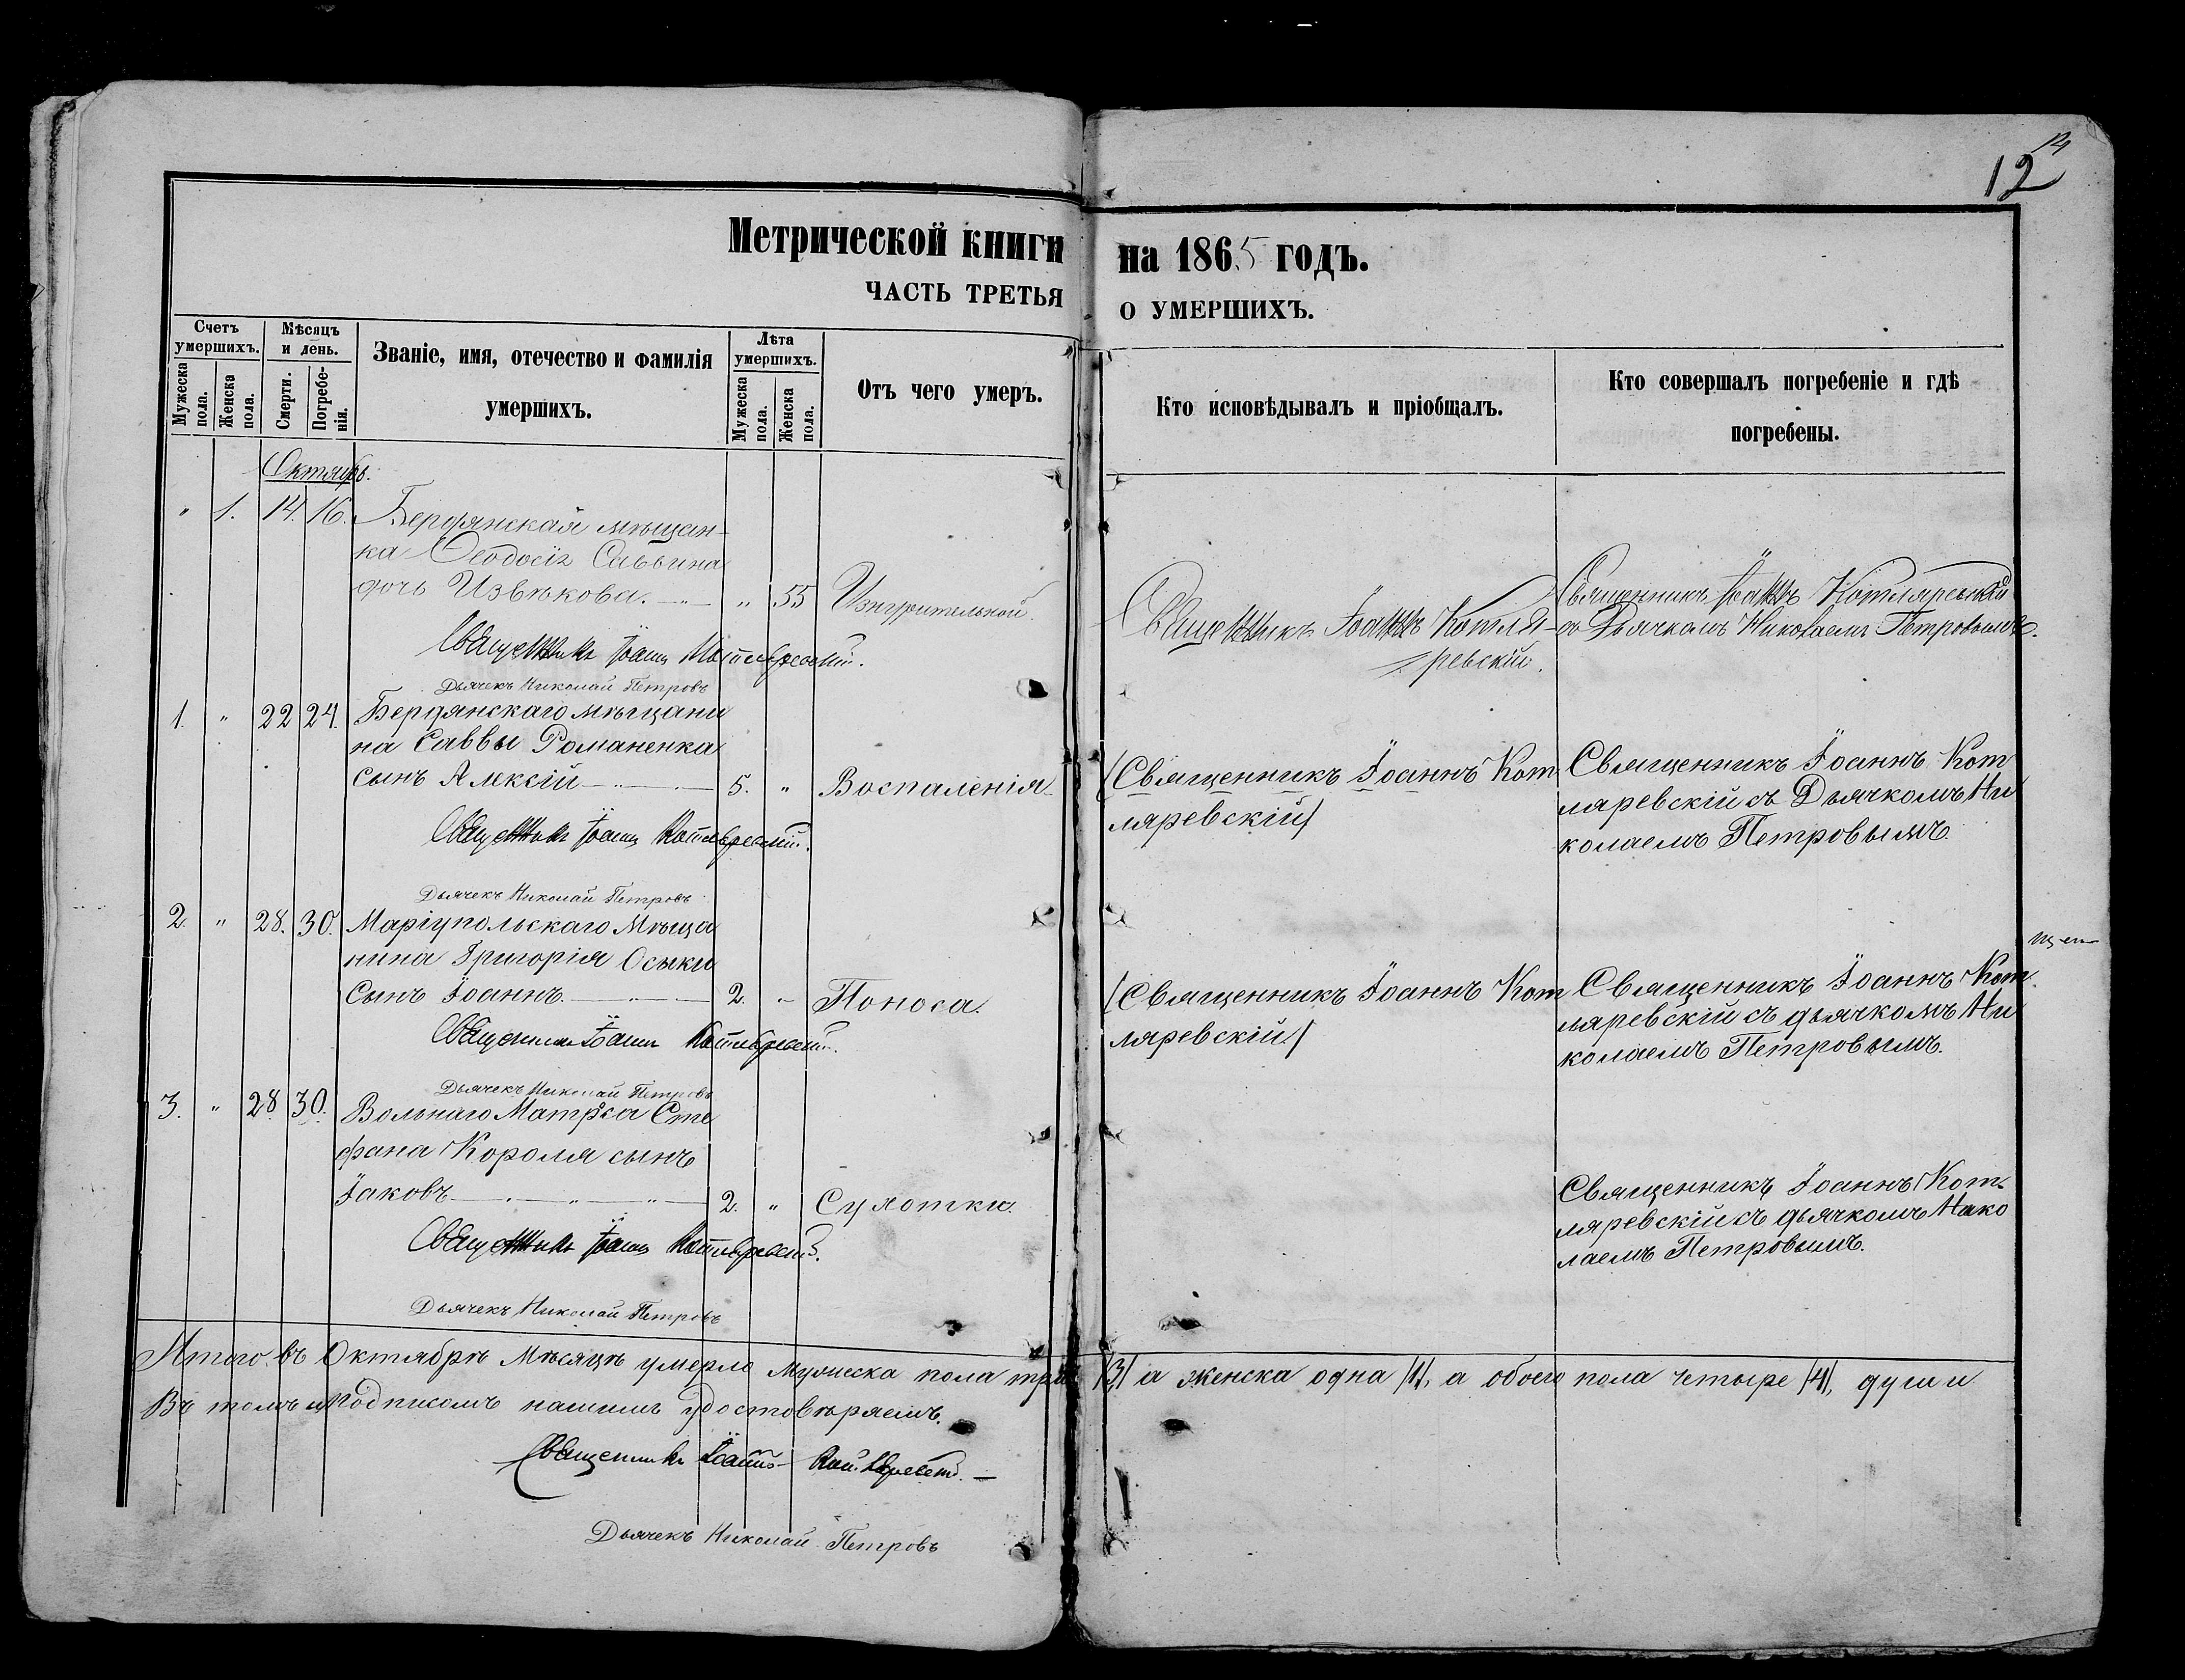 14
12
Метрической книги на 1865 годъ.
ЧАСТЬ ТРЕТЬЯ О УМЕРШИХЪ.
Счетъ умершихъ.
Мужеска пола.
Женска пола.
Мѣсяцъ и день.
Смерти.
Погребенія.
Званіе, имя, отечество и фамилія
умершихъ.
Лѣта умершихъ.
Мужеска пола.
Женска пола.
Отъ чего умеръ.
Кто исповѣдывалъ и пріобщалъ.
Кто совершалъ погребеніе и гдѣ
погребены.
Октябрь.
" 1. 14. 16. Бердянская мѣщан-
ка Ѳеодосія Саввина
дочь Извѣкова. " 55 Изнурительной.
Священникъ Іоаннъ Котля-
ревскій.
Священникъ Іоаннъ Котляревскій
съ Дьячкомъ Николаемъ Петровымъ.
Священникъ Іоаннъ Котляревскій.
Дьячекъ Николай Петровъ
1. " 22 24. Бердянскаго мѣщани
на Саввы Романенка
сынъ Алексій 5. " Воспаленія
/Священникъ Іоаннъ Кот
ляревскій/
Священникъ Іоаннъ Кот
ляревскій съ Дьячкомъ Ни
колаемъ Петровымъ.
Священникъ Іоаннъ Котляревскій.
Дьячекъ Николай Петровъ
2. " 28. 30. Маріупольскаго Мѣща
нина Григорія Осыки
Сынъ Іоаннъ. 2. " Поноса.
/Священникъ Іоаннъ Кот
ляревскій/
Священникъ Іоаннъ Кот.
ляревскій съ дьячкомъ Ни
колаемъ Петровымъ.
Священникъ Іоаннъ Котляревскій.
Дьячекъ Николай Петровъ
3. " 28. 30. Вольнаго Матроса Сте
фана Короля сынъ
Іаковъ 2. " Сухотки.
Священникъ Іоаннъ Кот-
ляревскій съ дьячкомъ Нико
лаемъ Петровымъ.
Священникъ Іоаннъ Котляревскій.
Дьячекъ Николай Петровъ
Итого въ Октябрѣ Мѣсяцѣ умерло мужеска пола три /3/ а женска одна /1/, а обоего пола четыре /4/, души
Въ томъ и подписомъ нашимъ удостовѣряемъ.
Священникъ Іоаннъ Котляревскій.
Дьячекъ Николай Петровъ